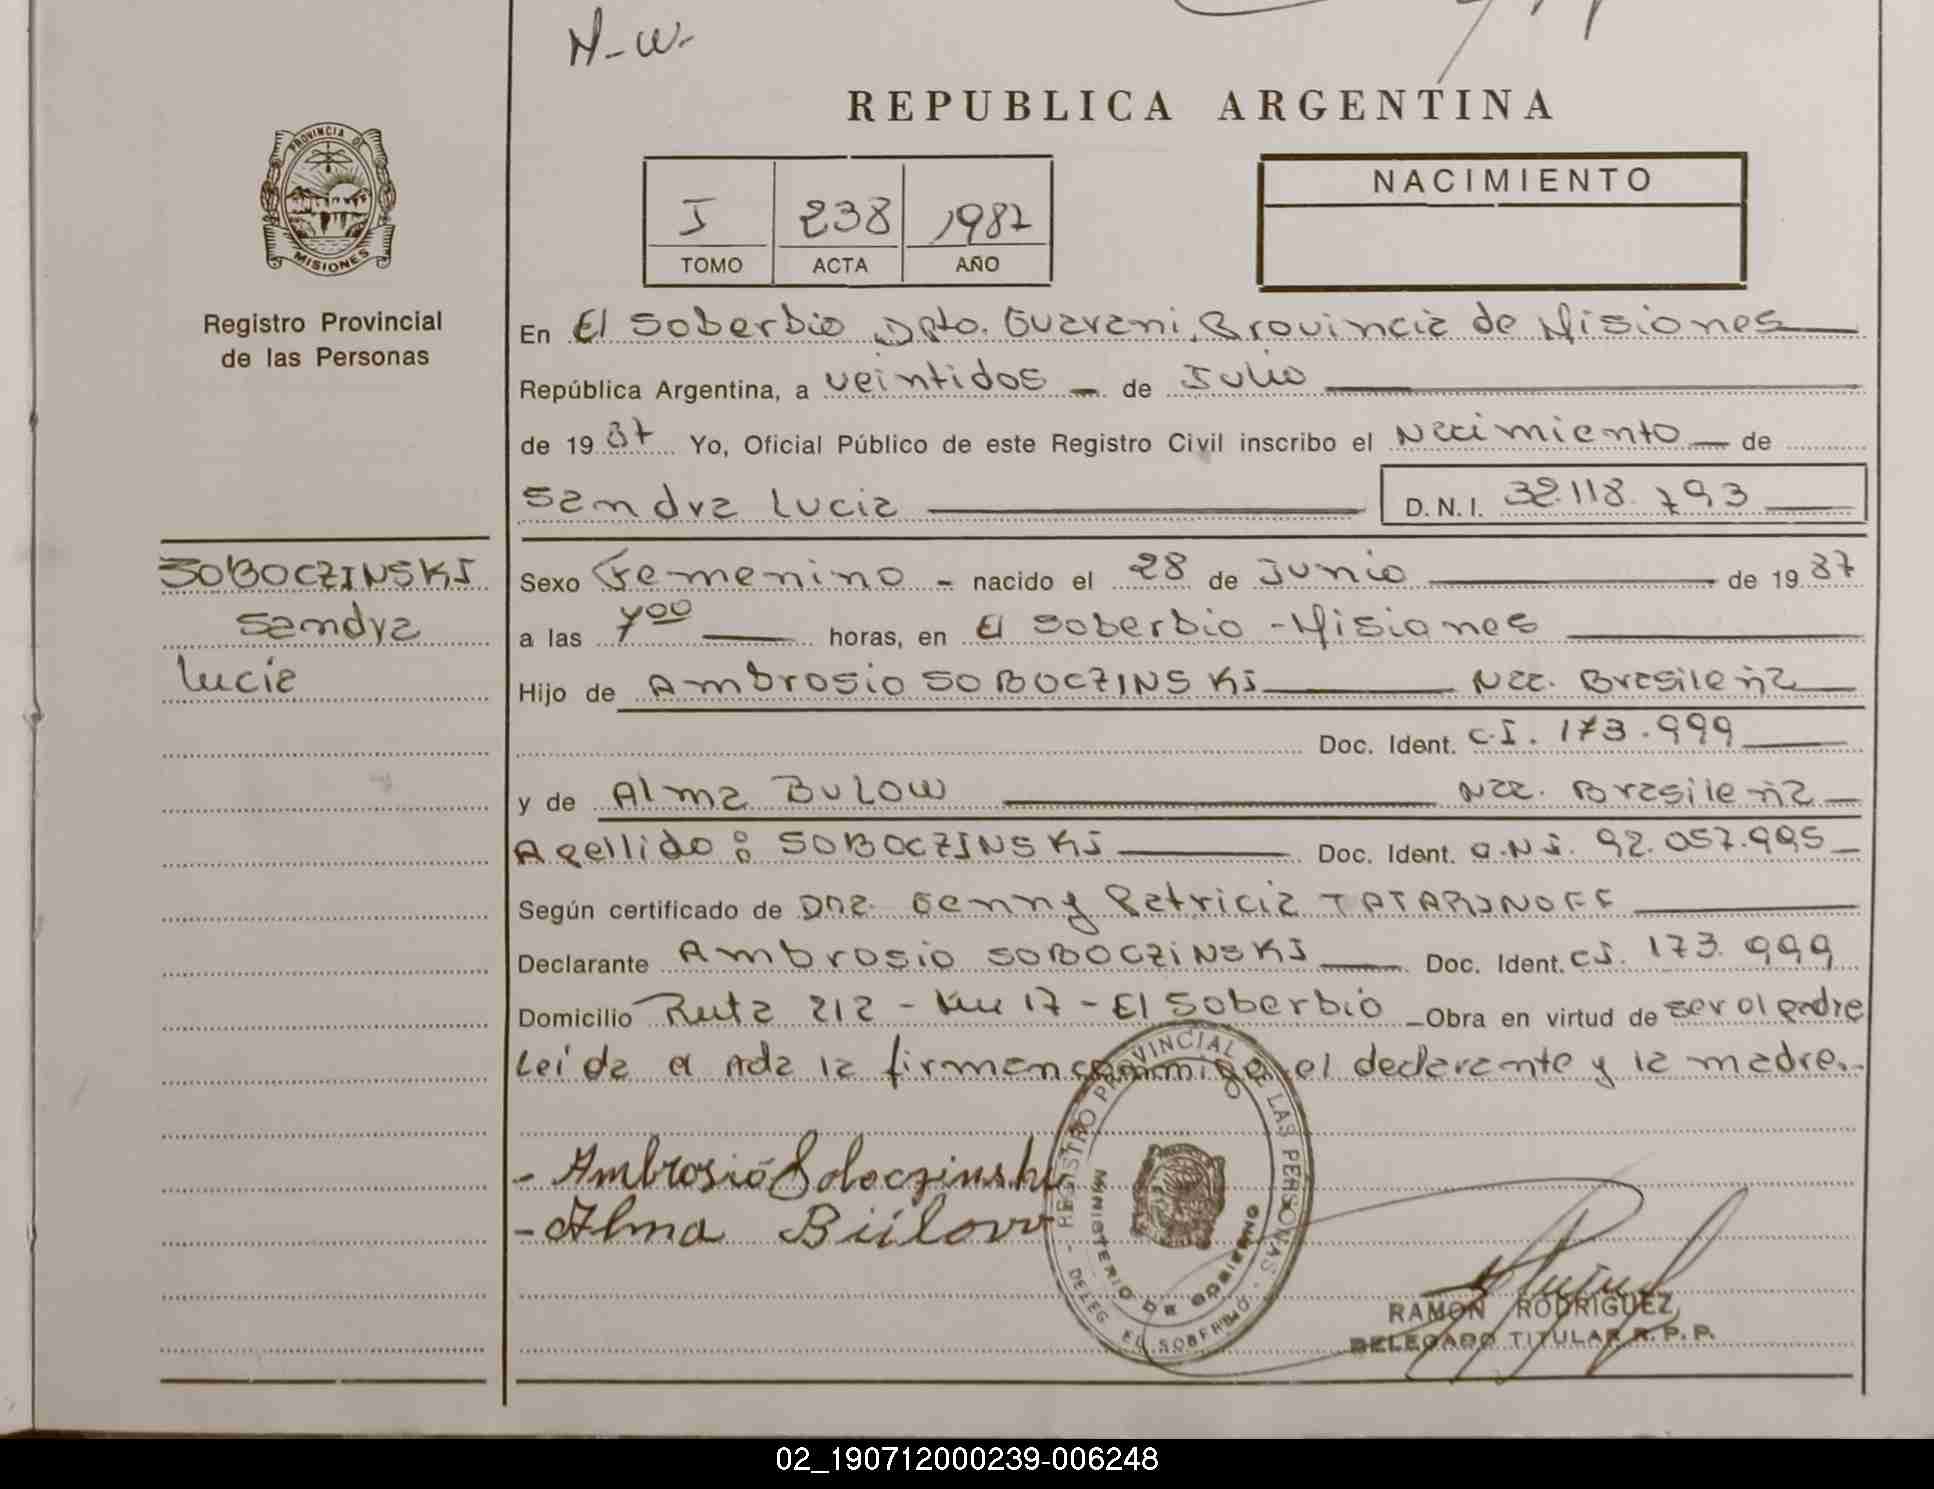 N-W-
REPUBLICA ARGENTINA
PROVINCIA DE
MISIONES
Registro Provincial
de las Personas
I 238 1987
TOMO ACTA AÑO
NACIMIENTO
En El Soberbio Dpto. Guarani, Provincia de Misiones
República Argentina, a veintidos - de Julio
de 1987 Yo, Oficial Público de este Registro Civil inscribo el Nacimiento de
Sandra Lucia D.N.I. 32.118.793
SOBOCZINSKI
Sandra
Lucia
Sexo Femenino - nacido el 28 de Junio de 1987
a las 7 00 horas, en El Soberbio - Misiones
Hijo de Ambrosio SOBOCZINSKI Nac. Brasileña
Doc. Ident. C.I. 173.999
y de Alma BULOW Nac. Brasileña
Apellido: SOBOCZINSKI Doc. Ident. D.N.I. 92.057.995
Según certificado de Dra. Genny Patricia TATARINOFF
Declarante Ambrosio SOBOCZINSKI Doc. Ident. C.I. 173.999
Domicilio Ruta 212 - Km 17 - El Soberbio - Obra en virtud de ser el padre
Leida el Acta la firman conmigo el declarante y la madre.-
- Ambrosio Soboczinski
- Alma Bülow
- REGISTRO PROVINCIAL DE LAS PERSONAS -
MINISTERIO DE GOBIERNO
DELEG. EL SOBERBIO
RAMON RODRIGUEZ
DELEGADO TITULAR R.P.P.
02_190712000239-006248